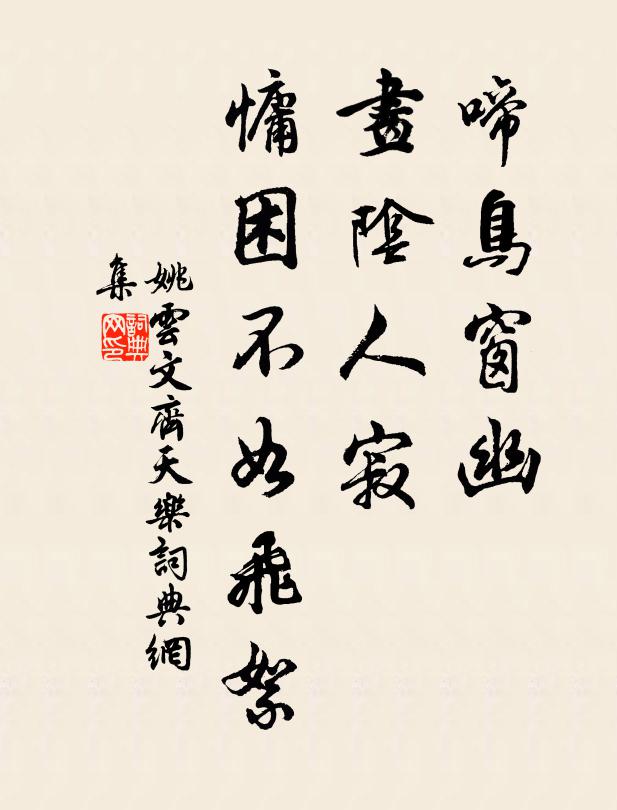 啼鳥窗幽
晝陰人寂
慵困不如飛絮
姚雲文齊天樂詞典網
集
詞典
网印